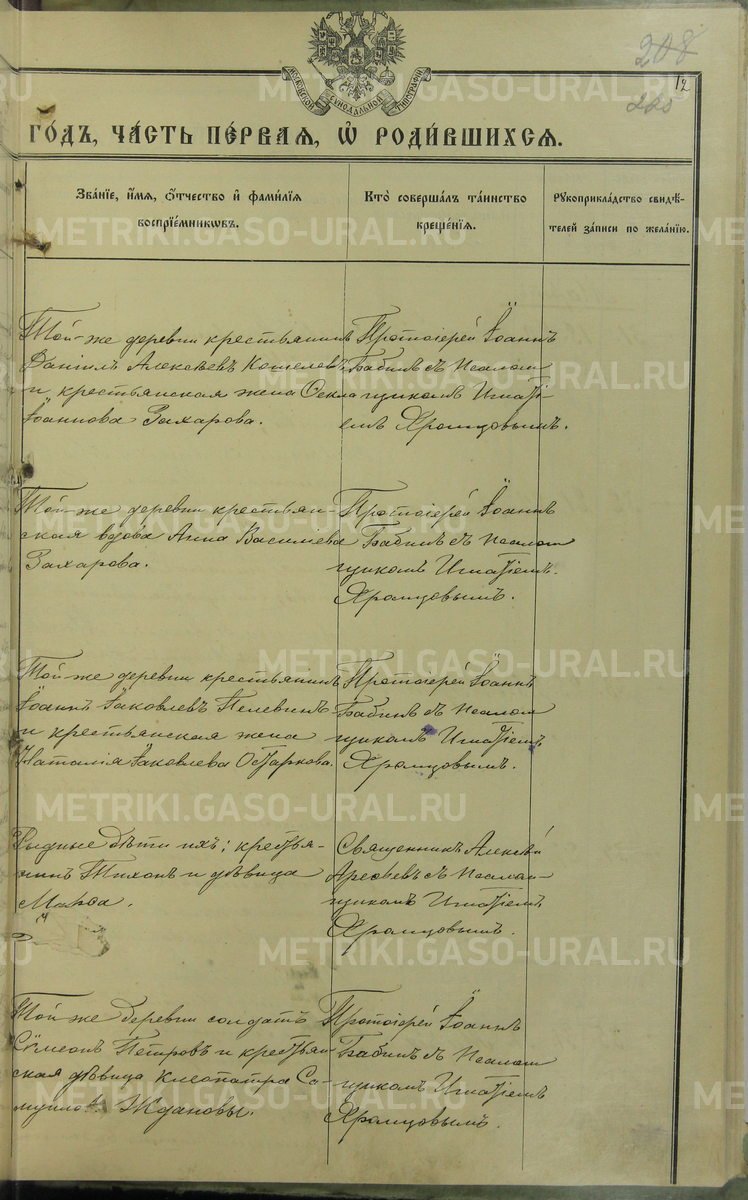 208
12
220
МОСКОВСКОЙ СѴНОДАЛЬНОЙ ТИПОГРАФІИ
го́дъ, ча́сть пе́рвая, ѡ҆ роди́вшихся.
Зва́нїе, и҆́мя, ѻ҆́тчество и҆ фами́лїя
воспрїе́мникѡвъ.
Кто̀ соверша́лъ та́инство
креще́нїя.
Рꙋкоприкла́дство свидѣ́-
телей за́писи по жела́нїю.
METRIKI.GASO-URAL.RU
Той-же деревни крестьянинъ
Даніилъ Алексѣевъ Кошелевъ
и крестьянская жена Фекла
Іоаннова Захарова.
Протоіерей Іоаннъ
Бабинъ съ Псалом
щикомъ Игнаті
емъ Хромцовымъ.
Той-же деревни крестьян-
ская вдова Анна Василіева
Захарова.
Протоіерей Іоаннъ
Бабинъ съ Псалом
щикомъ Игнатіемъ
Хромцовымъ.
Той-же деревни крестьянинъ
Іоаннъ Іаковлевъ Пелевинъ
и крестьянская жена
Наталія Іаковлева
Протоіерей Іоаннъ
Бабинъ съ Псалом
щикомъ Игнатіемъ
Хромцовымъ.
Родные дѣти ихъ: крестья-
нинъ Тихонъ и дѣвица
Священникъ Алексѣй
Арефьевъ съ Псалом-
щикомъ Игнатіемъ
Хромцовымъ.
Той-же деревни солдатъ
Сѵмеонъ Петровъ и крестьян-
ская дѣвица Клеопатра Са-
муило Ждановы.
Протоіерей Іоаннъ
Бабинъ съ Псалом
щикомъ Игнатіемъ
Хромцовымъ.